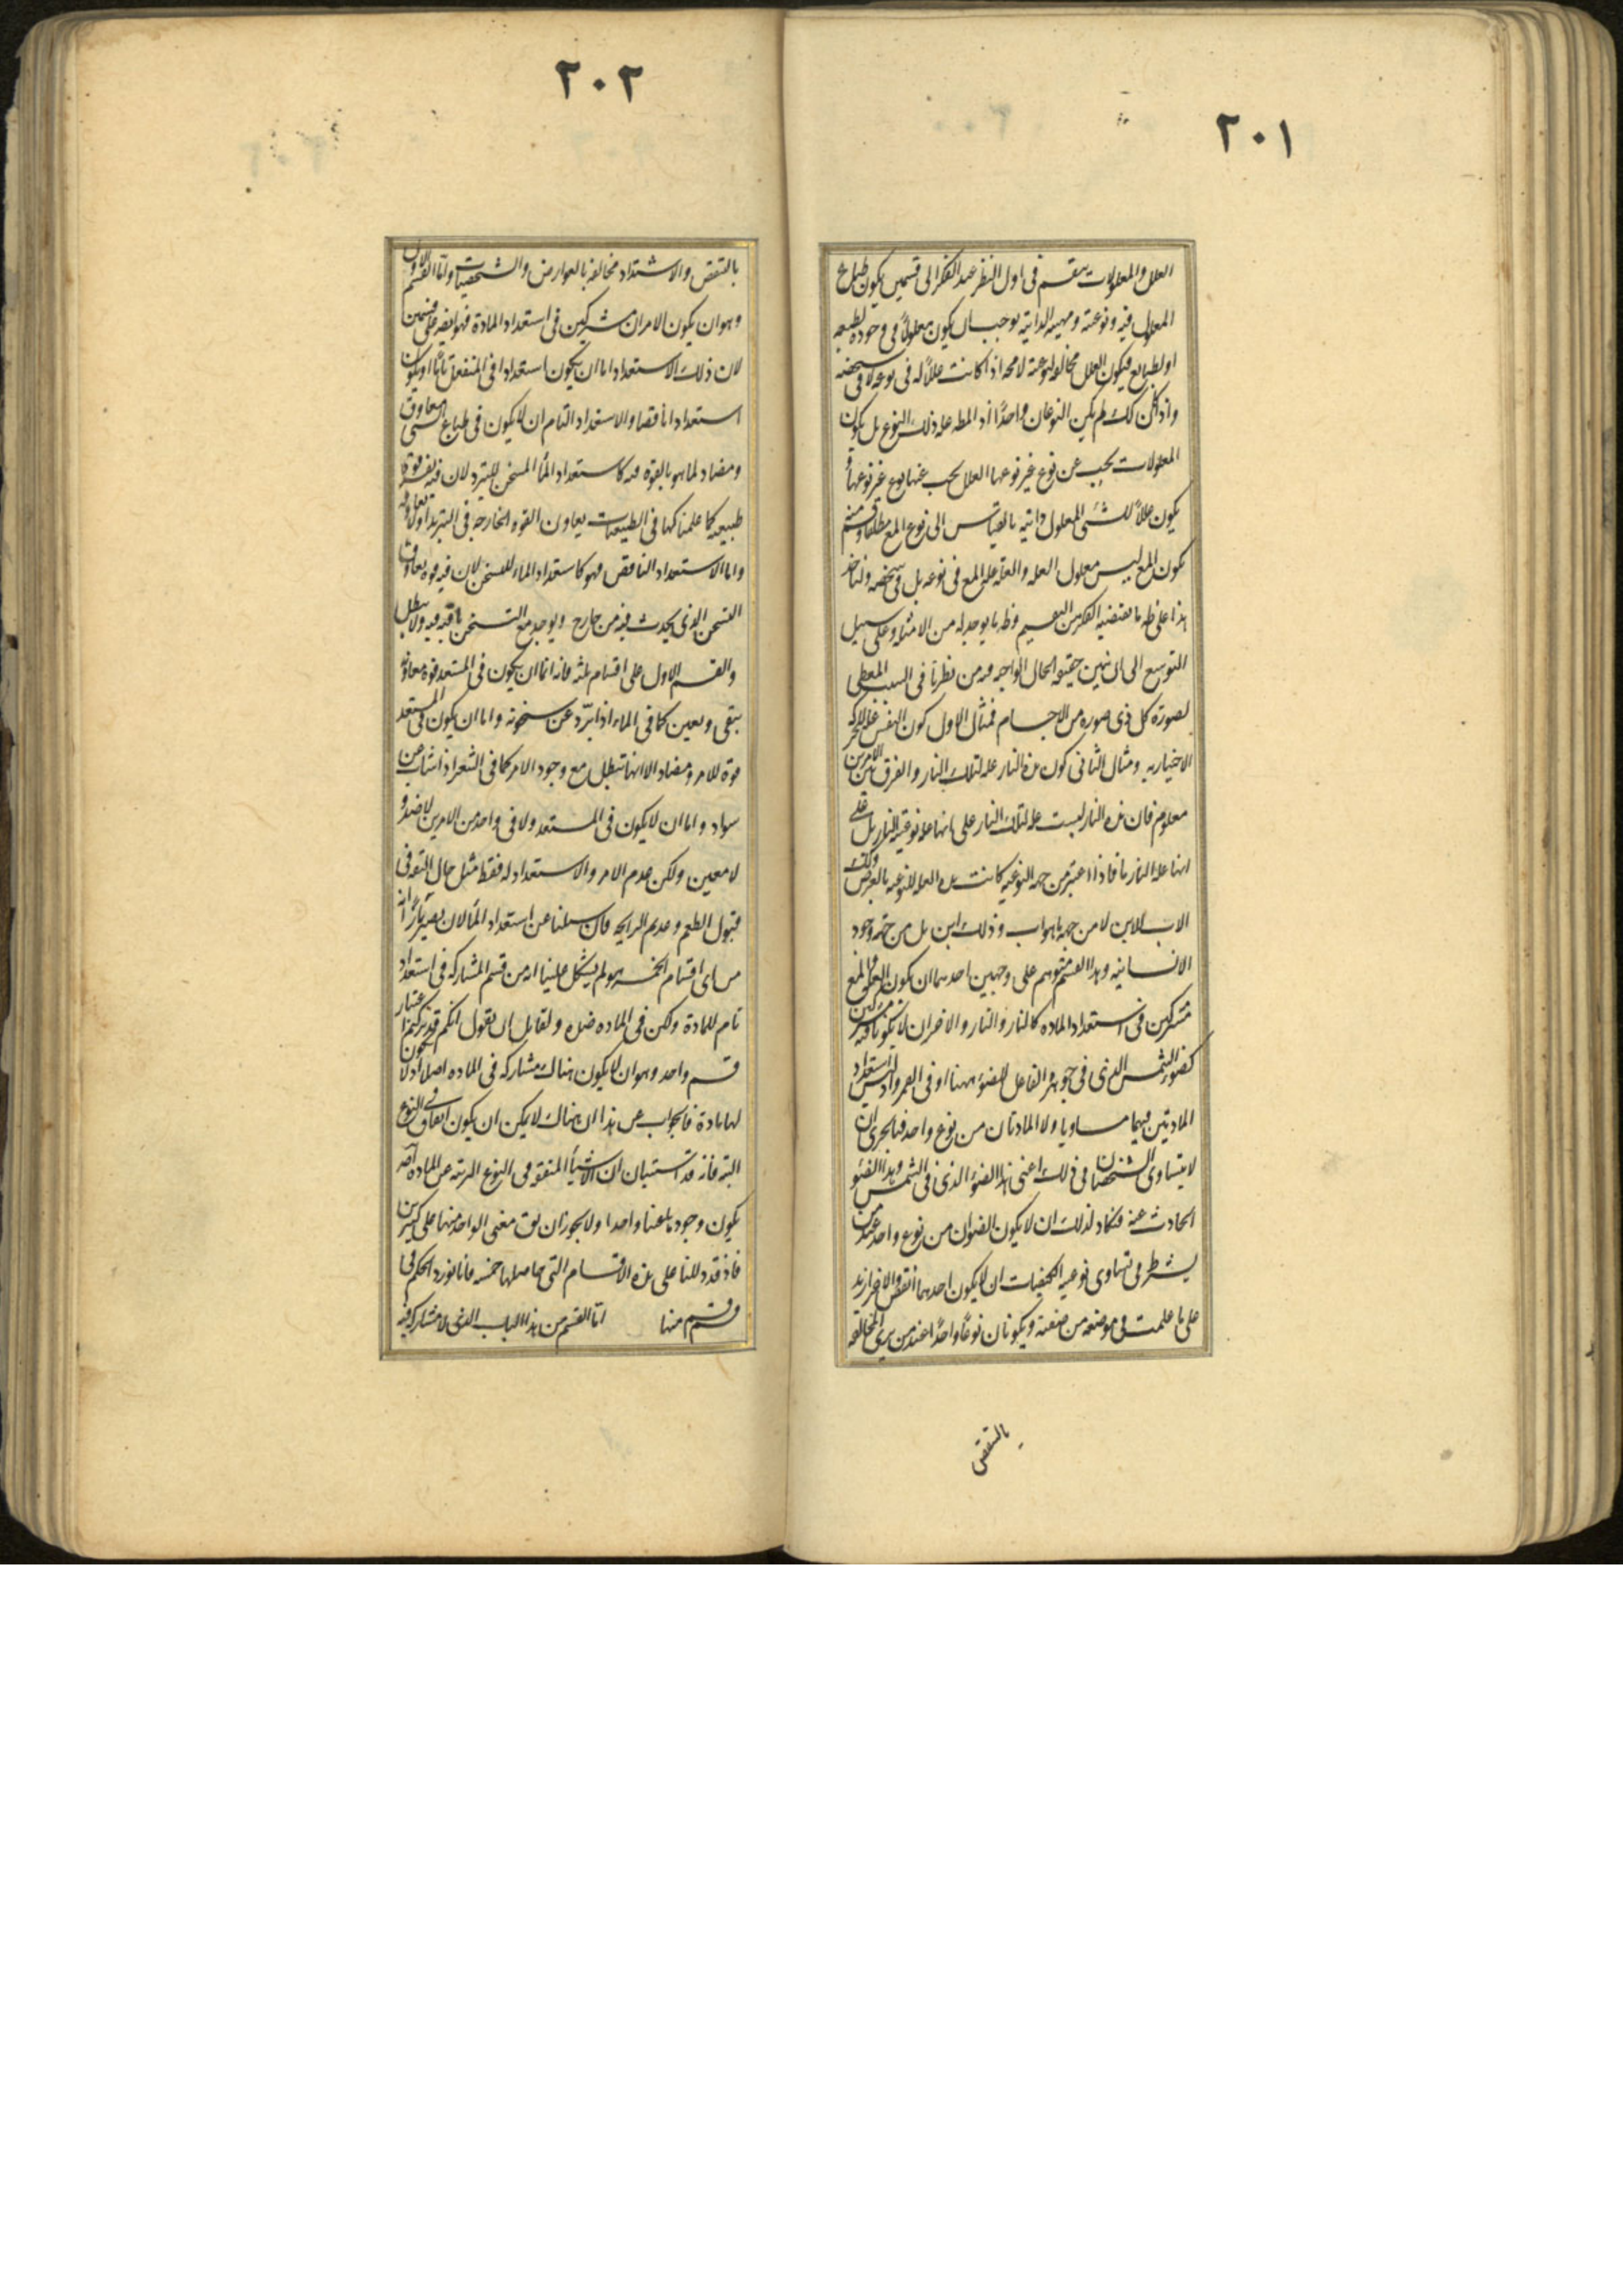 ٢٠١
العلل والمعلولات ينقسم فى اول النظر عند الفكر الى قسمين يكون طباع
المعلول فيه ونوعيته ومهيته الذاتيه يوجب ان يكون معلولاً فى وجوده لطبيعه
او لطبايع فيكون العلل مخالفه لنوعيته لا محه اذا كانت عللاً له فى نوعه لا فى شخصه
واذا كان كك لم يكن النوعان واحداً اذ المط عله ذلك النوع بل يكون
المعلولات يجب عن نوع غير نوعها العلل يجب عنها نوع غير نوعها و
يكون عللاً للشئ المعلول ذاتيه بالقياس الى نوع المع مطلقا وقسم منه
يكون المع ليس معلول العله والعله عله المع فى نوعه بل فى شخصه ولناخذ
هذا على ظه ما يقتضيه الفكر من التقسيم وظه ما يوجد له من الامثله وعلى سبيل
التوسع الى ان نبين حقيقه الحال الواجبه فيه من نظرنا فى السبب المعطى
لصورة كل ذى صوره من الاجسام فمثال الاول كون النفس عله للحركه
الاختياريه ومثال الثانى كون هذه النار عله لتلك النار والفرق بين الامرين
معلوم فان هذه النار ليست عله لتلك النار على انها عله نوعيه النار بل على
انها عله النار ما فاذا اعتبر من جهه النوعيه كانت هذه العله للنوعيه بالعرض وكك
الاب للابن لا من جهه ما هو اب وذلك ابن بل من جهه وجود
الانسانيه وهذا القسم متوهم على وجهين احدهما ان يكون العله والمع
مشتركين فى استعداد الماده كالنار والنار والاخر ان لا يكونا مشتركين فيه
كضوء الشمس الذى فى جوهره الفاعل للضوء ههنا او فى القمر واذ ليس استعداد
المادتين فيهما مساويا ولا المادتان من نوع واحد فبالحرى ان
لا يتساوى الشخصان فى ذلك اعنى هذا الضوء الذى فى الشمس وهذا الضوء
الحادث عنه فيكاد لذلك ان لا يكون الضوءان من نوع واحد عند من
يشترط فى تساوى نوعيه الكيفيات ان لا يكون احدهما انقص والاخر ازيد
على ما علمت فى موضعه من صفته ويكونان نوعاً واحداً عند من يرى المخالفه
بالتنقص
٢٠٢
بالتنقص والاشتداد مخالفه بالعوارض والتشخصيات واما القسم الاول
وهو ان يكون الامران مشتركين فى استعداد المادة فهو ايضه على قسمين
لان ذلك الاستعداد اما ان يكون استعدادا فى المنفعل تاما او يكون
استعدادا ناقصا والاستعداد التام ان لا يكون فى طباع الشى معاوق
ومضاد لما هو بالقوة فيه كاستعداد الماء المسخن للتبرد لان فيه نفسه قوة
طبيعيه كما علمنا كها فى الطبيعيات يعاون القوه الخارجه فى التبريد او لا تعاوقه
واما الاستعداد الناقص فهو كاستعداد الماء للتسخن لان فيه قوه تعاوق
التسخن الذى يحدث فيه من خارج ويوجد مع التسخن باقيه فيه ولا تبطل
والقسم الاول على اقسام ثلثه فانه اما ان يكون فى المستعد قوه معاونه
يبقى ويعين كما فى الماء اذا برد عن سخونه واما ان يكون فى المستعد
قوه للامر ومضاد الا انها تبطل مع وجود الامر كما فى الشعر اذا شاب من
سواد واما ان لا يكون فى المستعد ولا فى واحد من الامرين لا ضد و
لا معين ولكن عدم الامر والاستعداد له فقط مثل حال التفه فى
قبول الطعم وعديم الرايحه فان سئلنا عن استعداد الماء لان يصير ناراً انه
من اى اقسام الخمسه هو لم يشكل علينا انه من قسم المشاركه فى استعداد
تام للمادة ولكن فى الماده ضده ولقايل ان يقول انكم قد تركتم اعتبار
قسم واحد وهو ان لا يكون هناك مشاركه فى الماده اصلا اذ لا يكون
لها مادة فالجواب عن هذا ان هناك لا يمكن ان يكون اتفاق فى النوع
البته فانه قد استبان ان الاشياء المتفقه فى النوع البريه عن الماده اصه
يكون وجودها عينا واحدا ولا يجوز ان يق معنى الواحد منها على كثيرين
فاذ قد دللنا على هذه الاقسام التى حاصلها خمسه فانا نورد الحكم فى
قسم قسم منها اما القسم من هذا الباب الذى لا مشاركه فيه